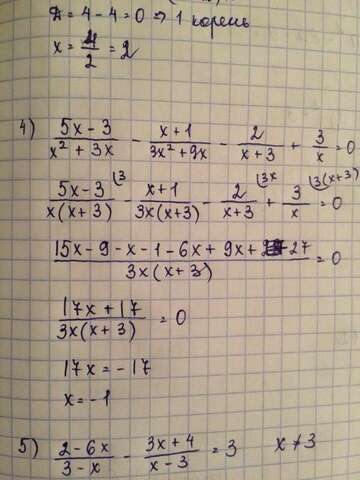 Д = 4 - 4 = 0 ⇒ 1 корень
x = 4/2 = 2
4) (5x - 3)/(x² + 3x) - (x + 1)/(3x² + 9x) - 2/(x + 3) + 3/x = 0
(5x - 3)/(x(x + 3)) ⌊3 - (x + 1)/(3x(x + 3)) - 2/(x + 3) ⌊3x + 3/x ⌊3(x + 3) = 0
(15x - 9 - x - 1 - 6x + 9x + 27)/(3x(x + 3)) = 0
(17x + 17)/(3x(x + 3)) = 0
17x = -17
x = -1
5) (2 - 6x)/(3 - x) - (3x + 4)/(x - 3) = 3 x ≠ 3